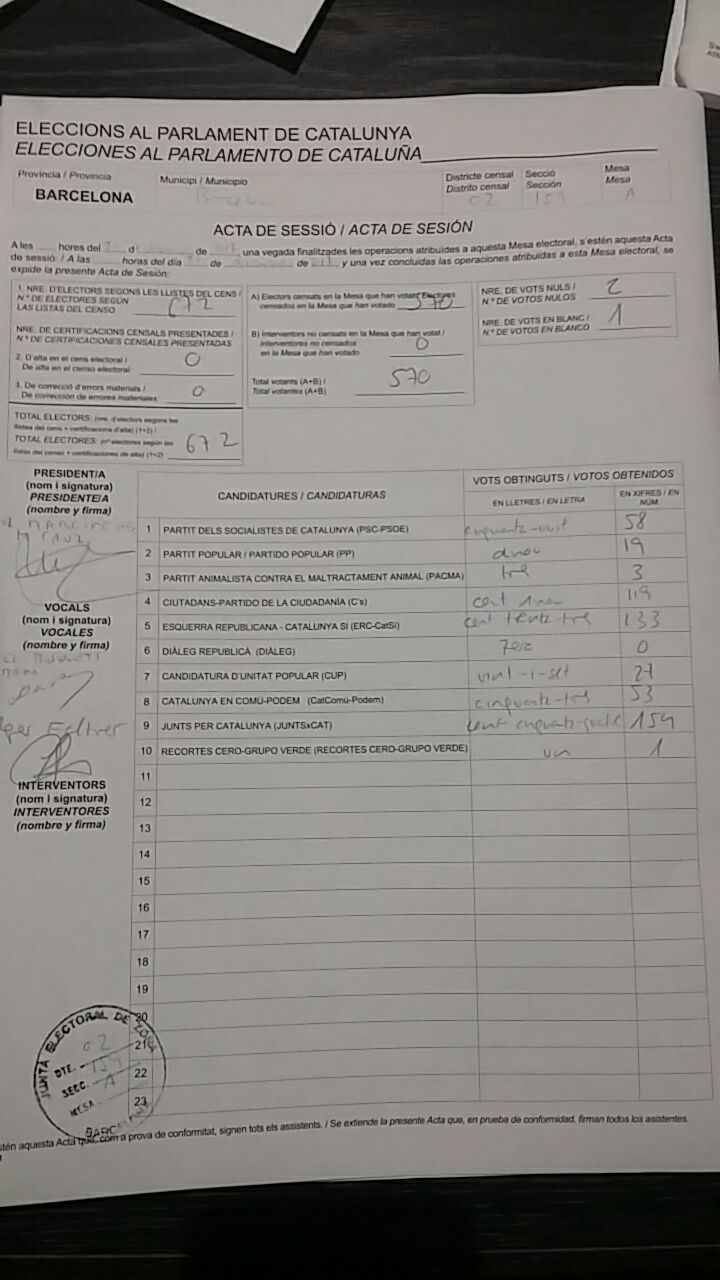 ELECCIONS AL PARLAMENT DE CATALUNYA
ELECCIONES AL PARLAMENTO DE CATALUÑA
Província / Provincia
BARCELONA
Municipi / Municipio
Districte censal
Distrito censal
02
Secció
Sección
159
Mesa
Mesa
A
ACTA DE SESSIÓ / ACTA DE SESIÓN
A les hores del d de una vegada finalitzades les operacions atribuïdes a aquesta Mesa electoral, s'estén aquesta Acta
de sessió. / A las horas del día de de y una vez concluidas las operaciones atribuidas a esta Mesa electoral, se
expide la presente Acta de Sesión:
1. NRE. D'ELECTORS SEGONS LES LLISTES DEL CENS /
N.º DE ELECTORES SEGÚN
LAS LISTAS DEL CENSO 672
NRE. DE CERTIFICACIONS CENSALS PRESENTADES /
N.º DE CERTIFICACIONES CENSALES PRESENTADAS
2. D'alta en el cens electoral /
De alta en el censo electoral 0
3. De correcció d'errors materials /
De corrección de errores materiales 0
TOTAL ELECTORS: (nre. d'electors segons les
llistes del cens + certificacions d'alta) (1+2) /
TOTAL ELECTORES: (nº electores según las
listas del censo + certificaciones de alta) (1+2) 672
A) Electors censats en la Mesa que han votat / Electores
censados en la Mesa que han votado 570
B) Interventors no censats en la Mesa que han votat /
Interventores no censados
en la Mesa que han votado 0
Total votants (A+B) /
Total votantes (A+B) 570
NRE. DE VOTS NULS /
N.º DE VOTOS NULOS 2
NRE. DE VOTS EN BLANC /
N.º DE VOTOS EN BLANCO 1
PRESIDENT/A
(nom i signatura)
PRESIDENTE/A
(nombre y firma)
VOCALS
(nom i signatura)
VOCALES
(nombre y firma)
INTERVENTORS
(nom i signatura)
INTERVENTORES
(nombre y firma)
CANDIDATURES / CANDIDATURAS
VOTS OBTINGUTS / VOTOS OBTENIDOS
EN LLETRES / EN LETRA
EN XIFRES / EN NÚM.
1 PARTIT DELS SOCIALISTES DE CATALUNYA (PSC-PSOE) 58
2 PARTIT POPULAR / PARTIDO POPULAR (PP) dinou 19
3 PARTIT ANIMALISTA CONTRA EL MALTRACTAMENT ANIMAL (PACMA) tre 3
4 CIUTADANS-PARTIDO DE LA CIUDADANÍA (C's) cent dinou 119
5 ESQUERRA REPUBLICANA - CATALUNYA SI (ERC-CatSí) cent trenta-tres 133
6 DIÀLEG REPUBLICÀ (DIÀLEG) zero 0
7 CANDIDATURA D'UNITAT POPULAR (CUP) vint-i-set 27
8 CATALUNYA EN COMÚ-PODEM (CatComú-Podem) cinquanta-tres 53
9 JUNTS PER CATALUNYA (JUNTSxCAT) 154
10 RECORTES CERO-GRUPO VERDE (RECORTES CERO-GRUPO VERDE) un 1
11
12
13
14
15
16
17
18
19
20
21
22
23
JUNTA ELECTORAL DE ZONA
DTE. 02
SECC. 159
MESA A
BARCELONA
stén aquesta Acta que, com a prova de conformitat, signen tots els assistents. / Se extiende la presente Acta que, en prueba de conformidad, firman todos los asistentes.